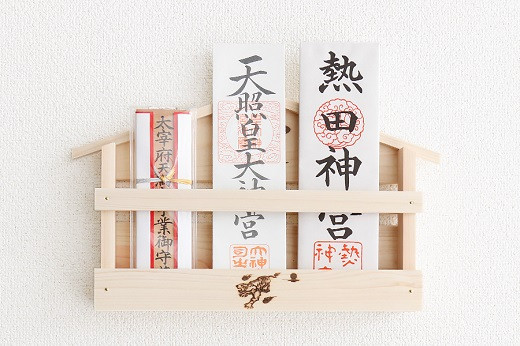 熱田神宮
熱
神
天照皇大神宮
太宰府天
業御守